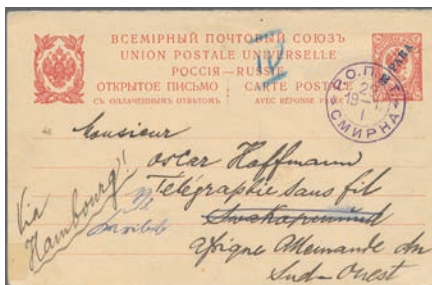 ВСЕМІРНЫЙ ПОЧТОВЫЙ СОЮЗЪ
UNION POSTALE UNIVERSELLE
РОССІЯ — RUSSIE
ОТКРЫТОЕ ПИСЬМО CARTE POSTALE
СЪ ОПЛАЧЕННЫМЪ ОТВѢТОМЪ AVEC RÉPONSE
PARA
СМИРНА
Monsieur
Oscar Hoffmann
Télégraphie sans fil
Via
Hambourg!
Afrique Allemande du
Sud-Ouest